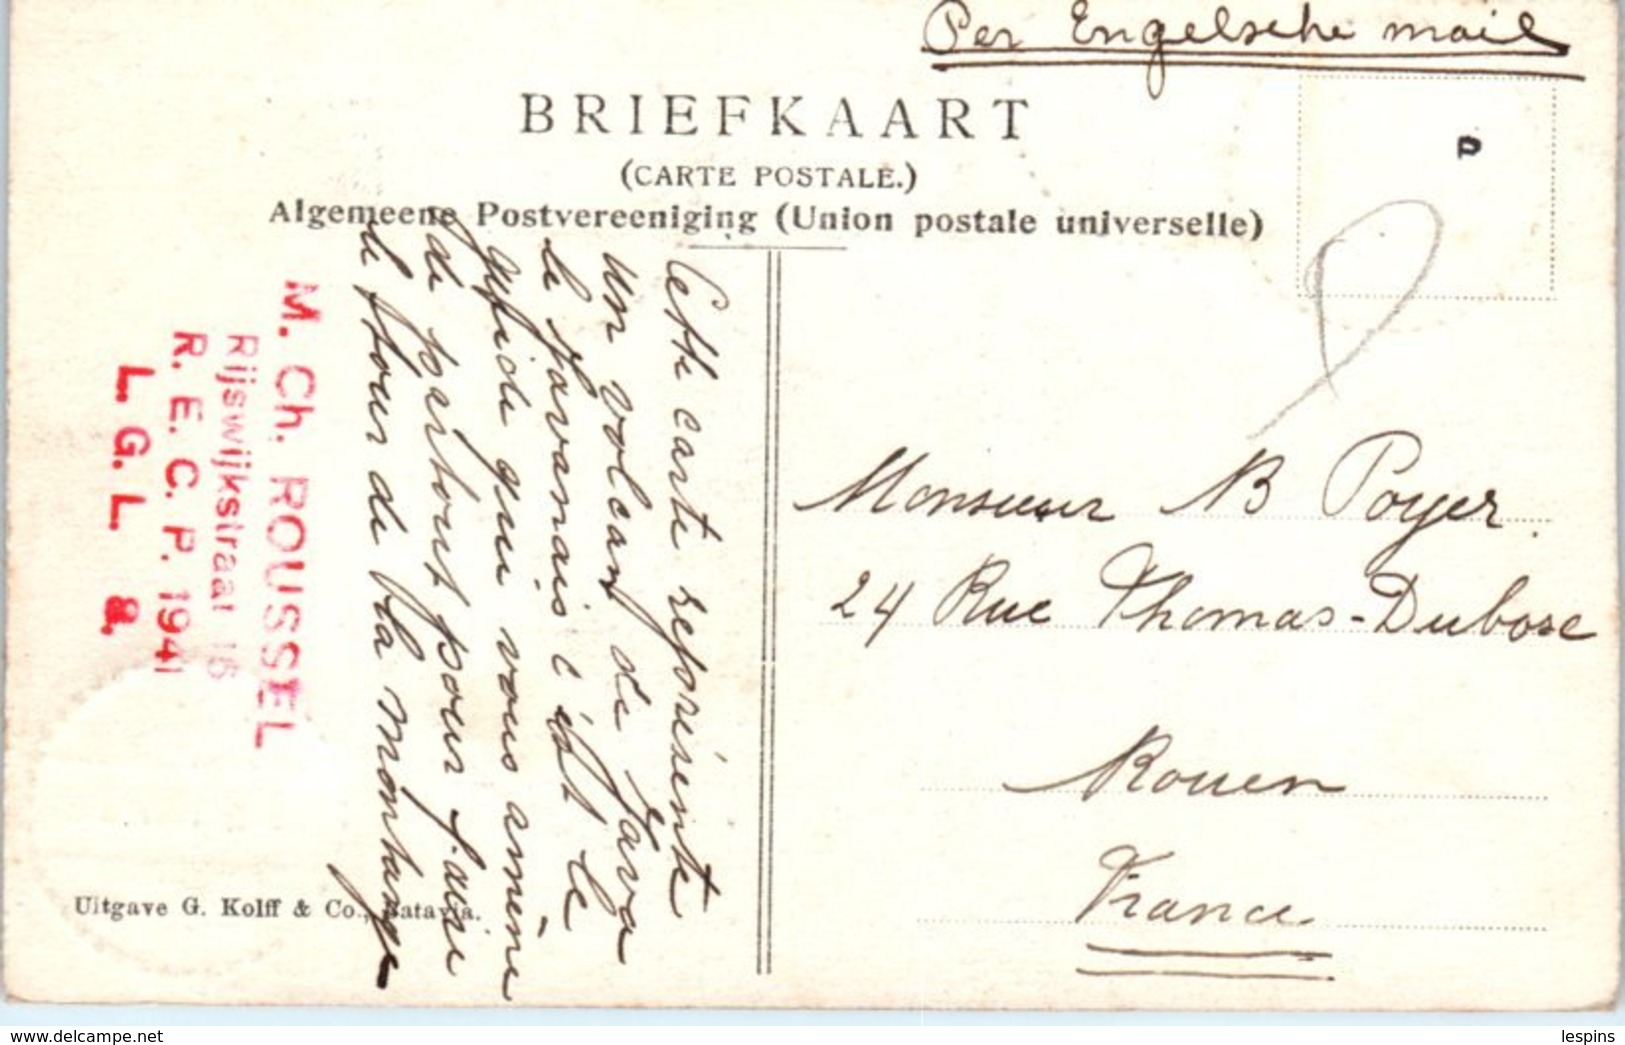 Per Engelsche mail
BRIEFKAART
(CARTE POSTALE.)
Algemeene Postvereeniging (Union postale universelle)
Cette carte représente
un volcan de Java
le Javanais c'est le
guide qui vous amène
de partout pour faire
le tour de la montagne
M. Ch. ROUSSEL
Rijswijkstraat 15
R. E. C. P. 1941
L. G. L. 8.
Monsieur B Poyer
24 Rue Thomas-Dubosc
Rouen
France
Uitgave G. Kolff & Co., Batavia.
www.delcampe.net
lespins